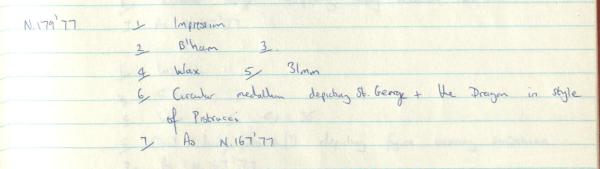 N.179'77 1/ Impression
2/ B'ham 3/
4/ Wax 5/ 31mm
6/ Circular medallion depicting St. George + the Dragon in style
of Pistrucci
7/ As N.167'77